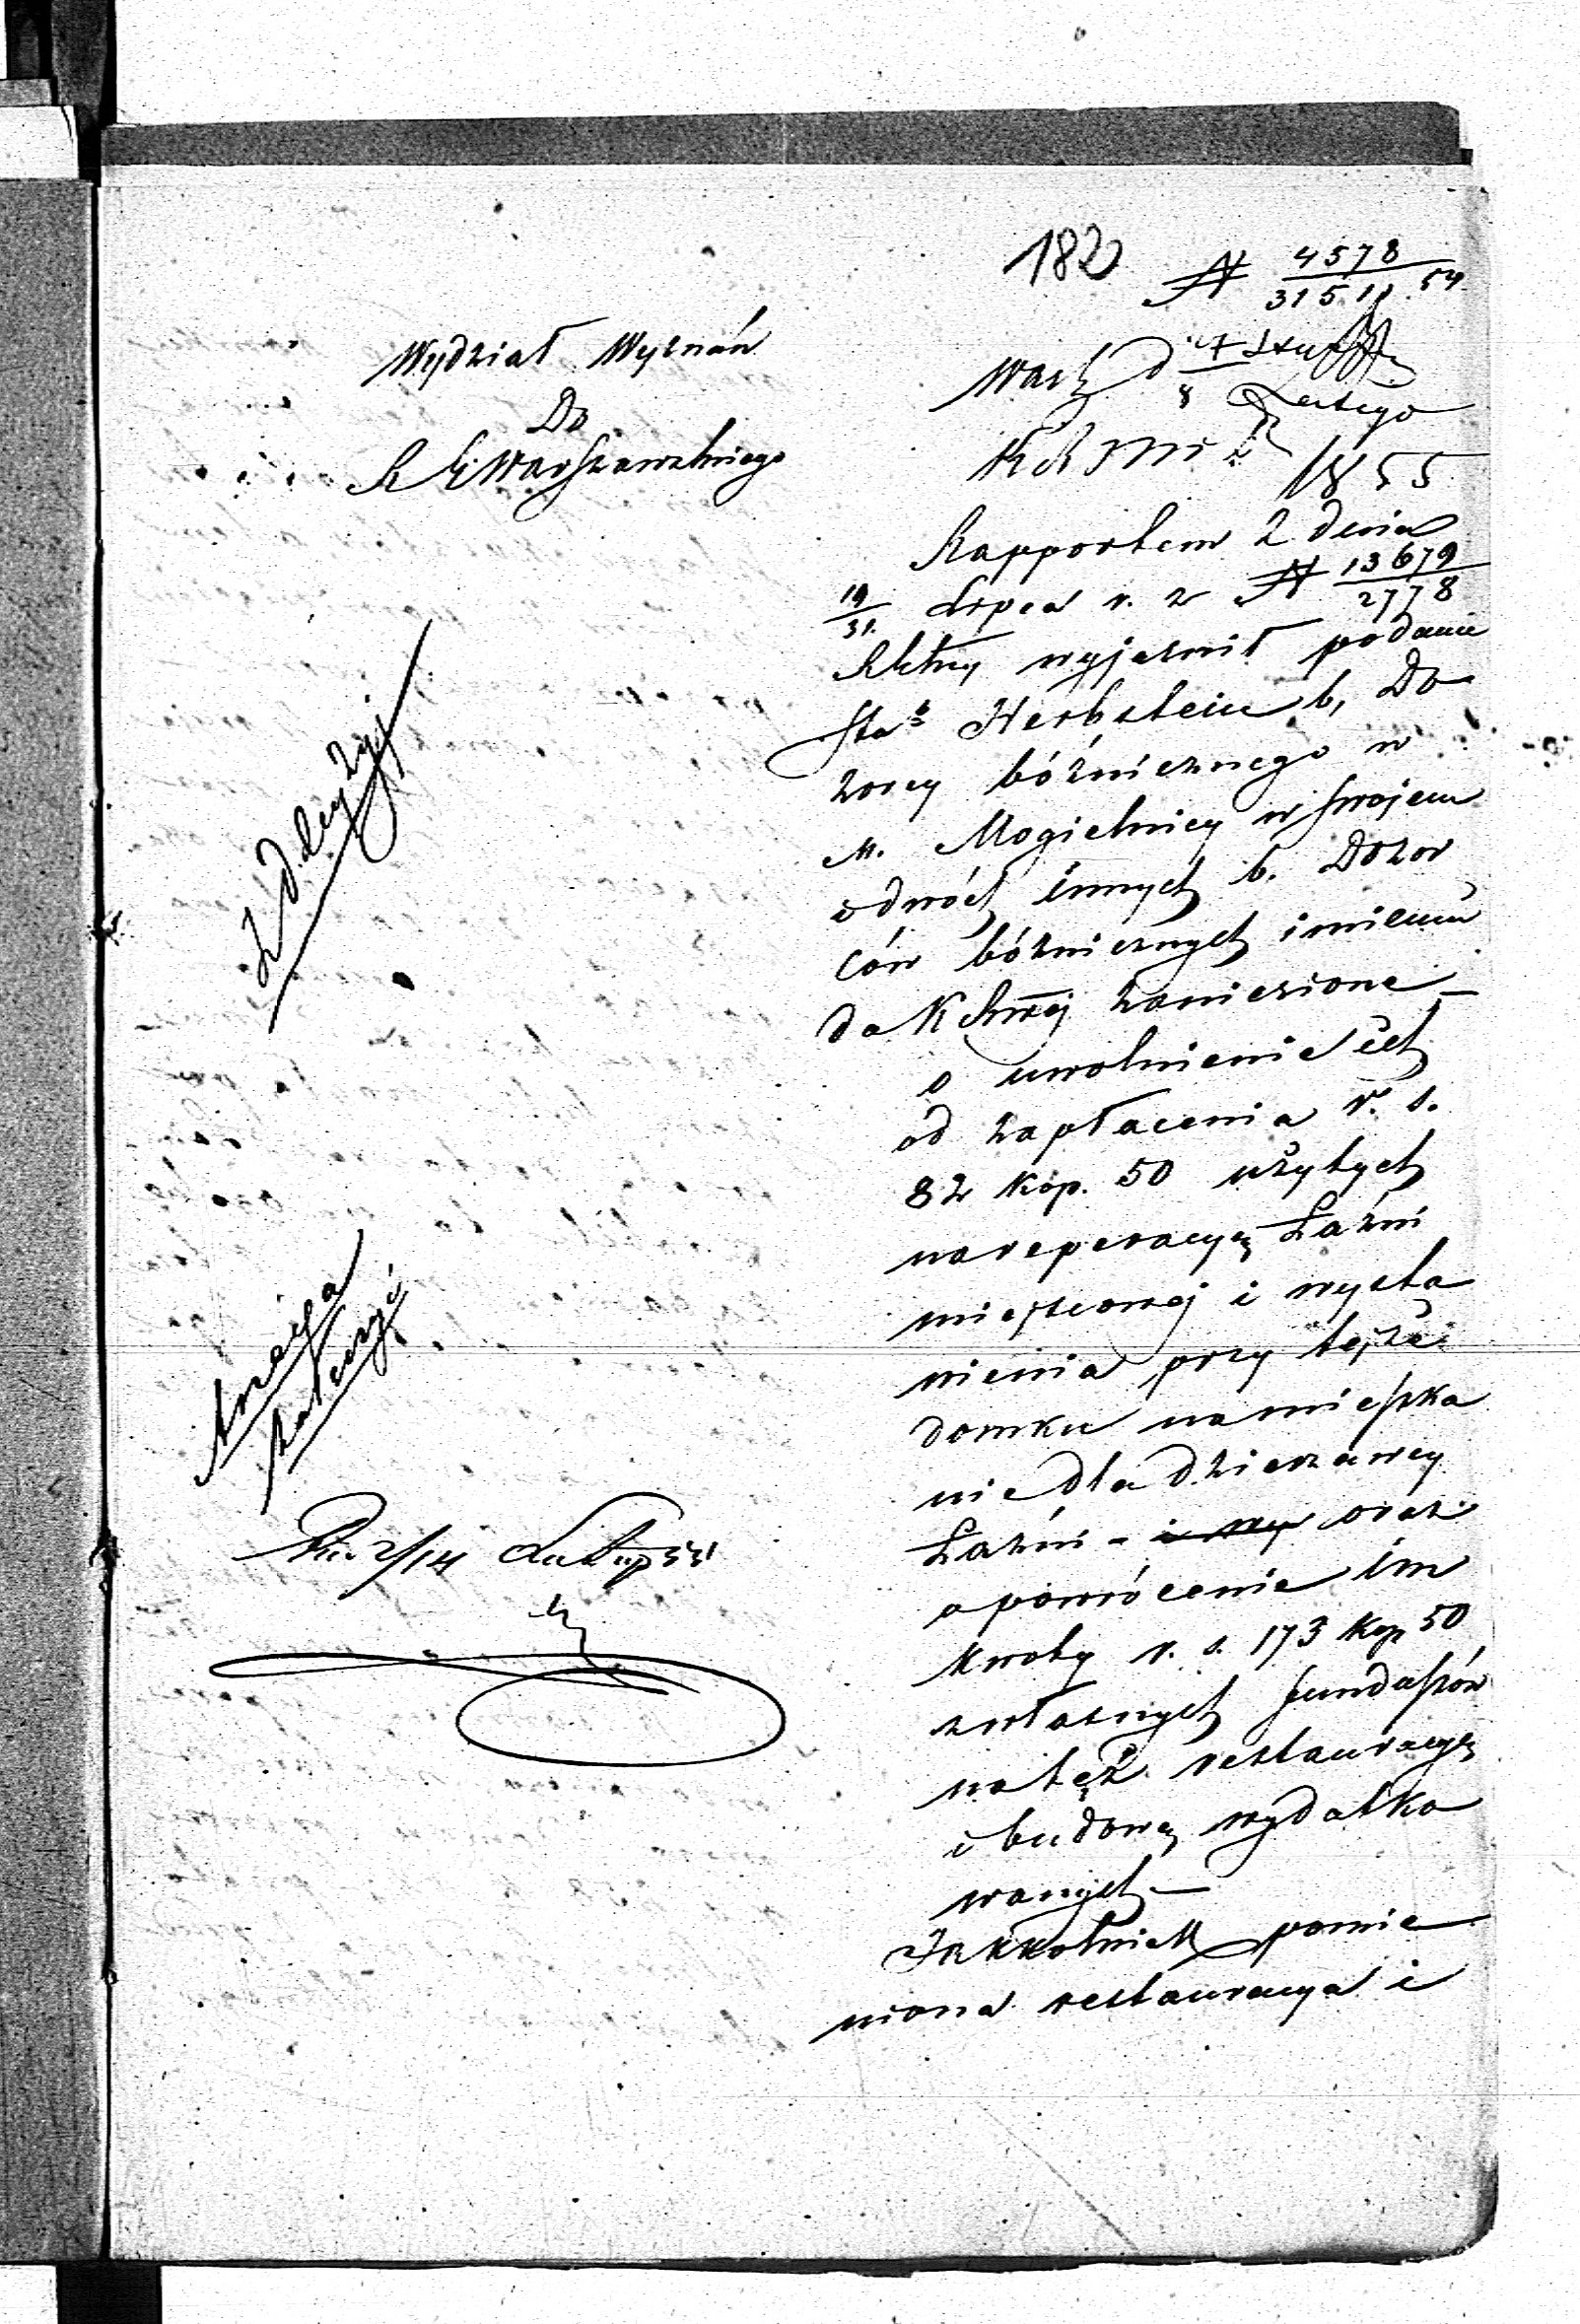 182
№ 4578/31510. 54
Wydział Wyznań
Do
R G Warszawskiego
Warsz d
8 Lutego
K R S W i D
1855
Rapportem z dnia
19/31. Lipca r. z № 13679/2778
Rktny wyjasnił podanie
Sta? Herbstein b, Do
zorcy bóźnicznego w
M. Mogielnicy w swojem
i dwóch innych b. Dozor
ców bóżnicznych imieniu
do K Rząj zaniesione
o uwolnienie ich
od zapłacenia r. s.
82 kop. 50 użytych
na reperacyę Łazni
miejscowej i wysta
wienia przy tejże
domku na mieszka
nie dla dzierzawcy
Łazni - i wy oraz
o powrócenie im
kwoty r. s. 173 kop 50
z własnych funduszów
na też restauracyę
i budowę wydatko
wanych —
Jakkolwiek pomie
niona restauracya i